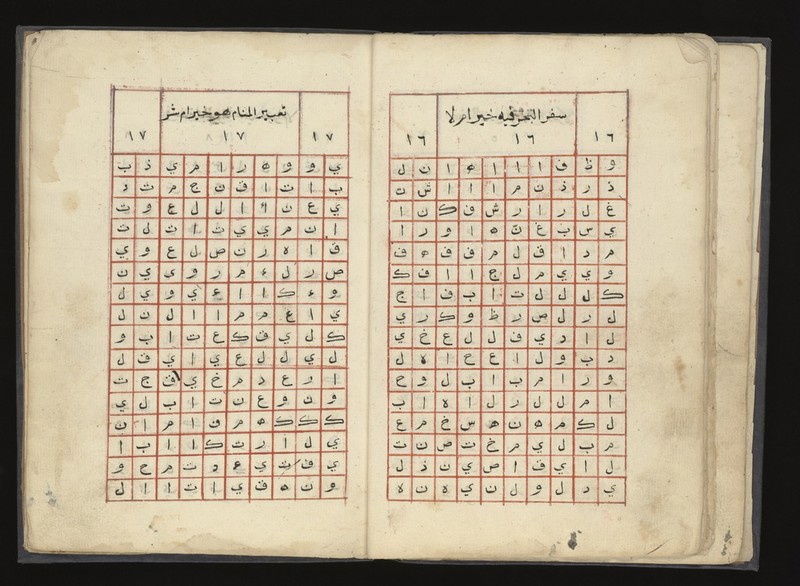 سفر البحر فيه خير ام لا
١٦ ١٦ ١٦
و ظ ف ا ا ا ه ا ن ل
ذ ر ذ ن م ا ا ا ش ن
غ ل ر ا ر ش ف ك ن ا
ي س ب غ ن ه ا و ر ا
م د ا ف ل م ف ف ه ف
و ي ي م ل ج ا ا ف ك
ك ل ل ل ت ا ب ف ا ج
ل ر ل ص ر ظ و ك ر ي
ل ا د ي ف ل ل ع خ ي
د ب و ل ا ع ح ا ه ل
و ر ا م ب ا ب ل و ح
ا م ل ل ر ل ا ه ا ب
ل ك م ه ن ه س خ م ع
م ب ل ي م خ ت ص ن ت
ل ا ي ف ا ص ي ن د ل
ي د ل و ل ن ي ه ن ه
تعبير المنام هو خير ام شر
١٧ ١٧ ١٧
ي و و ه ر ا م ي ذ ب
ب ا ت ا ف ن ج م ت د
ي ع ن ء ا ل ل ع و ت
ا ن م ي ي ث ا ت ل ت
ف ا ه ر ن ص ل ع و ي
ص ر ل ء م ر و ي ي ن
و ء ك ا ا ع ي و ي ل
ي ا ع م م ا ا ل ن ل
ك ل ي ف ك ع ت ا ب و
ل ي ل ل ع ي ا ي ف ل
ا ر ع د م خ ي ف ج ت
و ن و ع ن ت ا ب ل ي
ك ك ك ه م ف ا م ا ن
ي ل ا ر ت ك ا ا ب ا
ي ف ت ي ع د ت م ح و
و ن ه ف ي ا ت ا ا ل